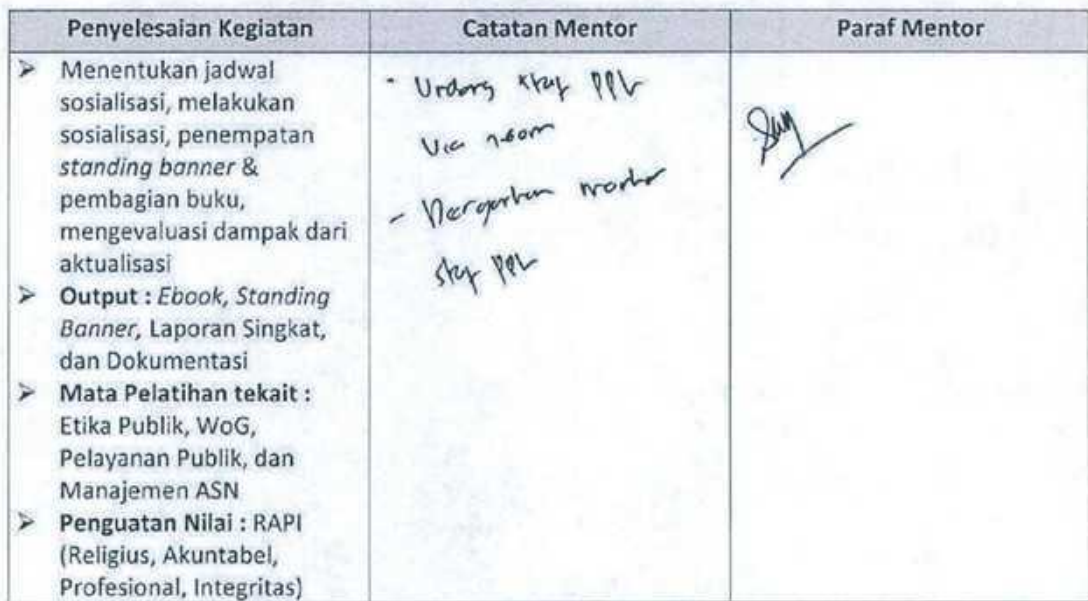 Penyelesaian Kegiatan
Catatan Mentor
Paraf Mentor
➤ Menentukan jadwal
sosialisasi, melakukan
sosialisasi, penempatan
standing banner &
pembagian buku,
mengevaluasi dampak dari
aktualisasi
➤ Output : Ebook, Standing
Banner, Laporan Singkat,
dan Dokumentasi
➤ Mata Pelatihan tekait :
Etika Publik, WoG,
Pelayanan Publik, dan
Manajemen ASN
➤ Penguatan Nilai : RAPI
(Religius, Akuntabel,
Profesional, Integritas)
- Undang staf
Via
-
staf